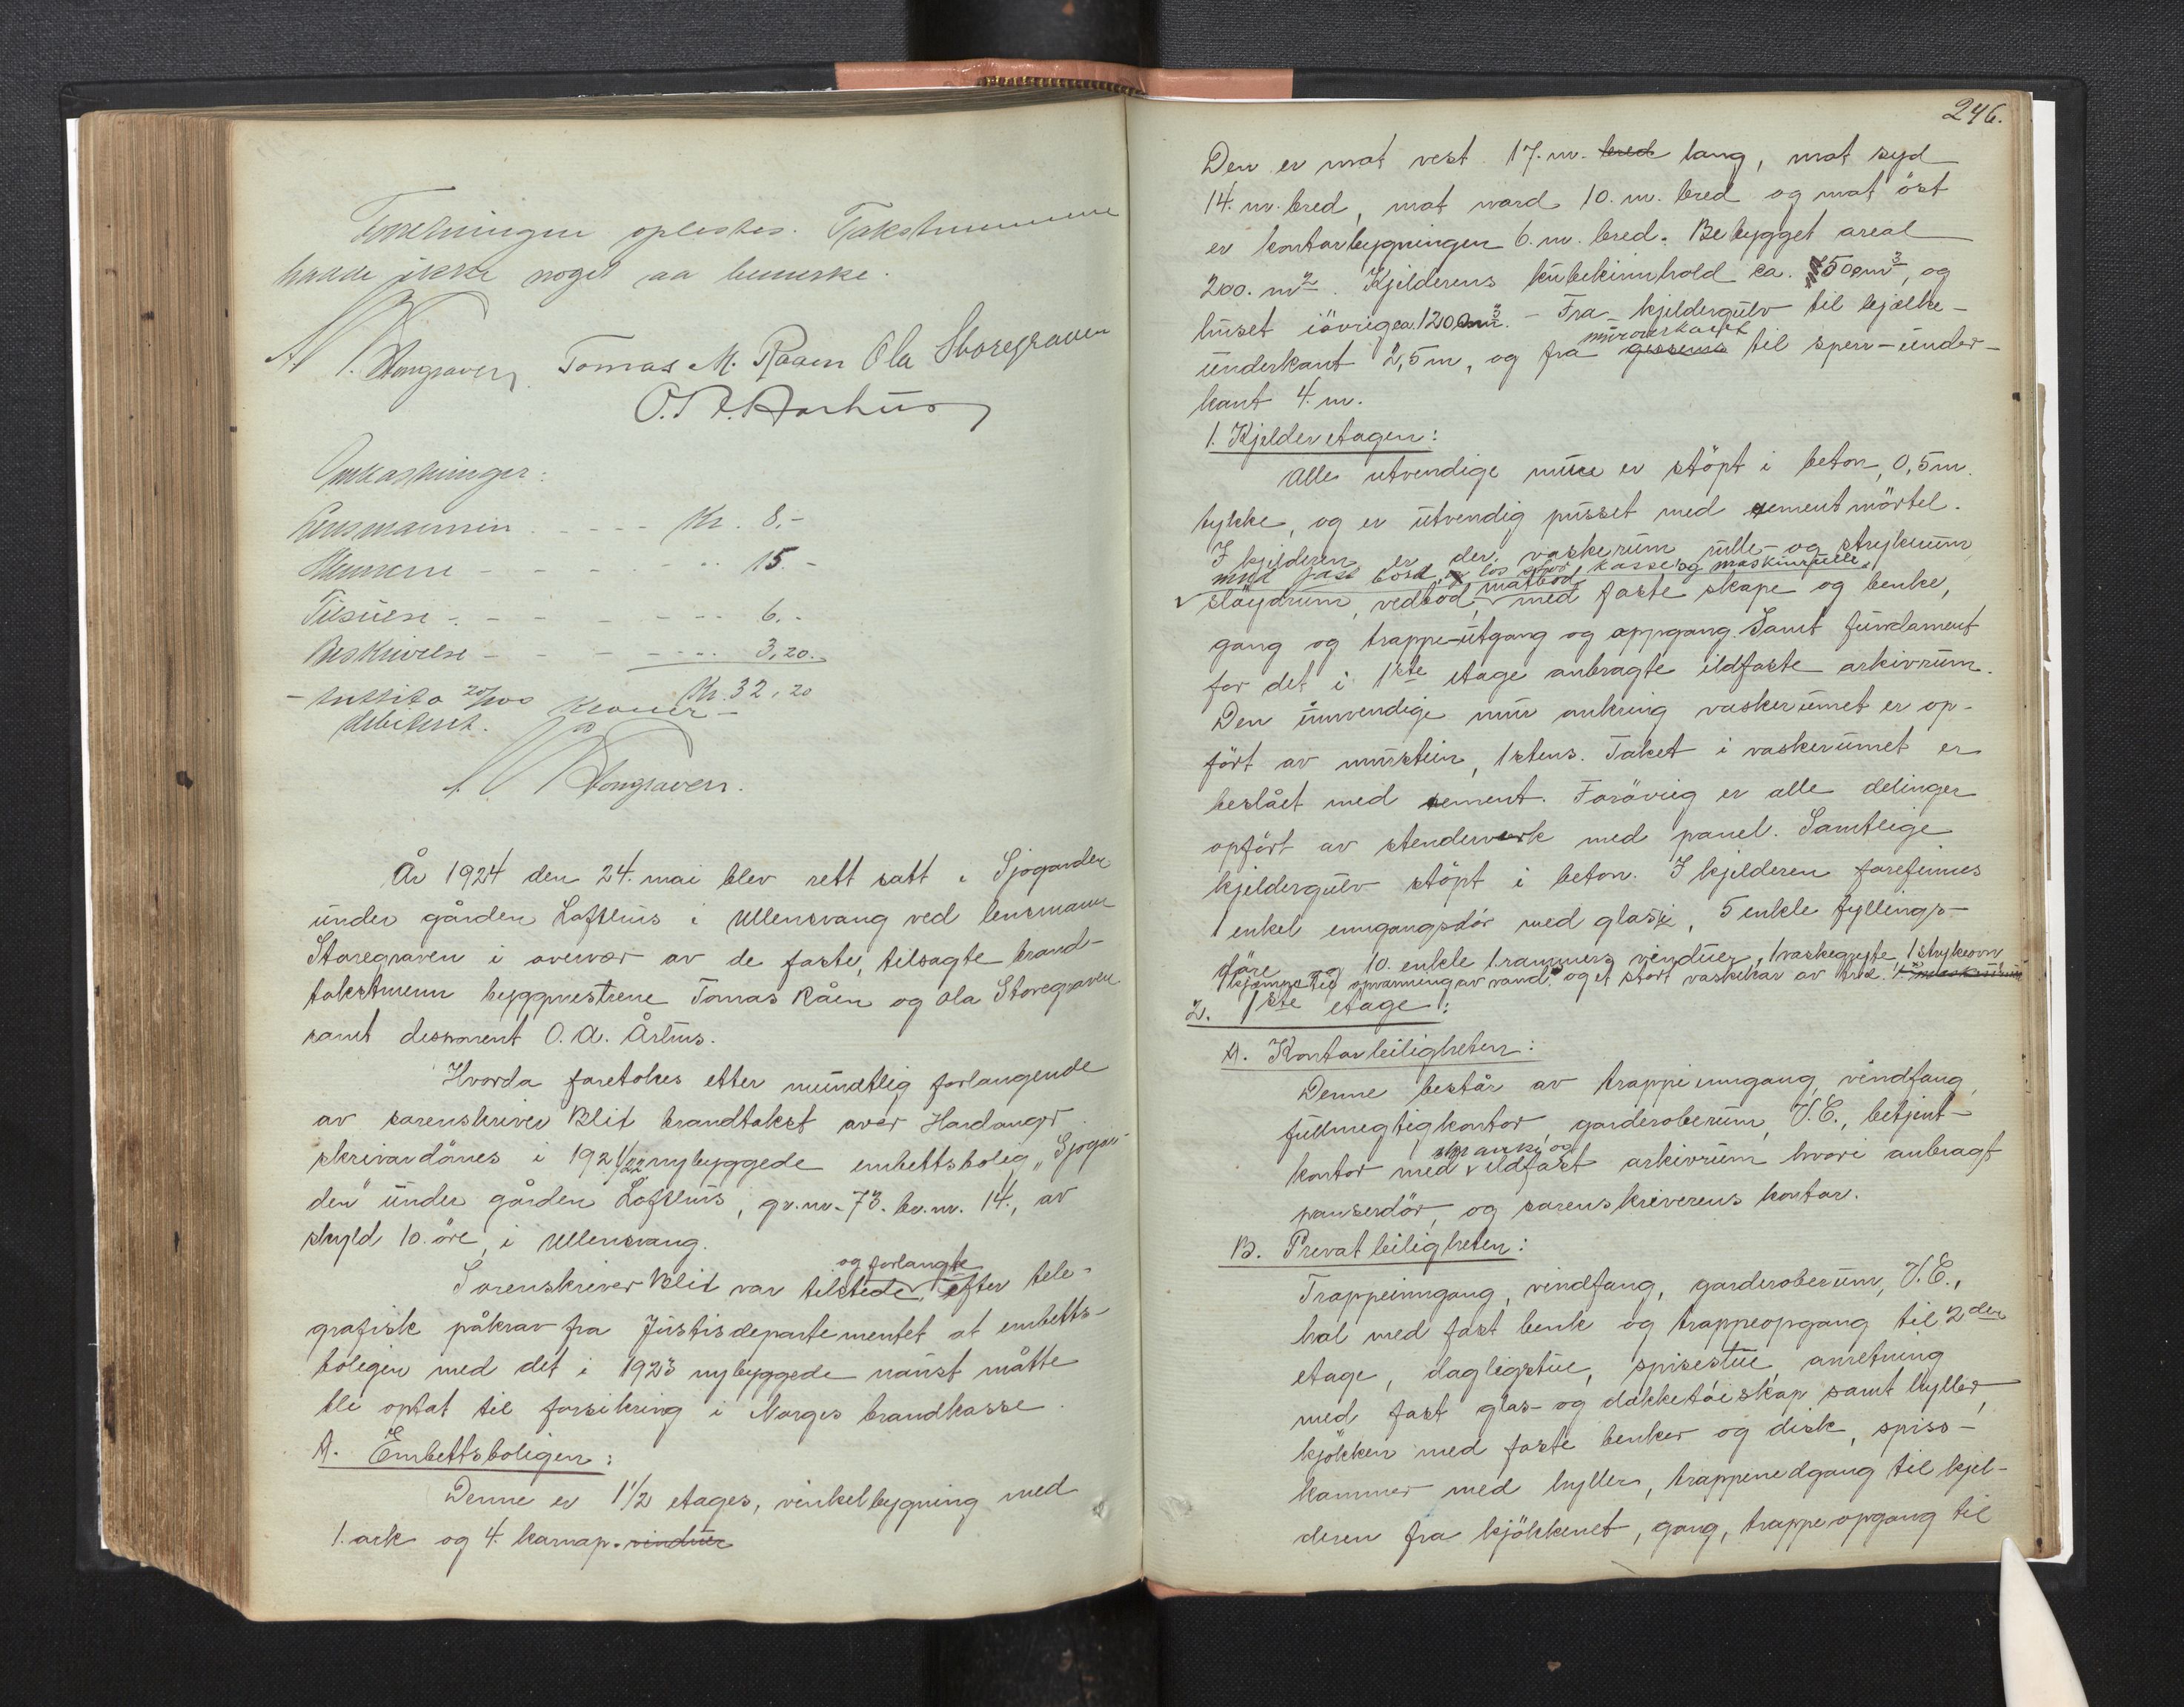 Forretningen oplestes. Takstmennene
hadde ikke noget aa bemerke.
Storegraven. Tomas M. Raaen Ola Storegraven
O. A. Aarhus
Omkostninger:
Lensmannen - - - - Kr. 8,-
Mennene - - - - - - 15.-
Tilsielse - - - - - - 6.-
Beskrivelse - - - - - - 3,20.
Kr. 32,20
- trettito 20/100 kroner -
debitert.
Storegraven.
År 1924 den 24. mai blev rett satt i Sjogarden
under gården Lofthus i Ullensvang ved lensmann
Storegraven i overvær av de faste, tilsagte brand-
takstmenn byggmestrene Tomas Råen og Ola Storegraven
samt disponent O. A. Århus.
Hvorda foretokes etter mundtlig forlangende
av sorenskriver Blit brandtakst over Hardanger
skrivardømes i 1921/22 nybyggede embettsbolig "Sjogar-
den" under gården Lofthus, gr.nr. 73. br.nr. 14., av
skyld 10. öre, i Ullensvang.
og forlangte
Sorenskriver Blit var tilstede, efter tele-
grafisk påkrav fra Justisdepartementet at embetts-
boligen med det i 1923 nybyggede naust måtte
bli optat til forsikring i Norges brandkasse.
A. Embettsboligen:
Denne er 1 1/2 etages, vinkelbygning med
1. ark og 4. karnap. vinduer
246.
Den er mot vest 17. m. bred lang, mot syd
14. m. bred, mot nord 10. m. bred og mot öst
er kontorbygningen 6. m. bred. Bebygget areal
200. m2. Kjelderens kubikinnhold ca. 500m3, og
huset iövrig ca. 1200 m3. - Fra kjeldergulv til bjelke-
muroverkant
underkant 2,5 m, og fra gessens til sperr-under-
kant 4. m.
1. Kjelderetagen:
Alle utvendige mure er stöpt i beton, 0,5 m.
tykke, og er utvendig pusset med sementmörtel.
I kjelderen er der vaskerum, rulle- og strykerum
med fast bord, og lös stor kasse og maskinrulle,
matbod
slöydrum, vedbod, med faste skape og benke,
gang og trappe-utgang og oppgang. Samt fundament
for det i 1ste etage anbragte ildfaste arkivrum.
Den innvendige mur omkring vaskerumet er op-
fört av murstein, 1 stens. Taket i vaskerumet er
beslået med sement. Forövrig er alle delinger
opfört av stenderverk med panel. Samtlige
kjeldergulv stöpt i beton. I kjelderen forefinnes
1 enkel inngangsdör med glas i, 5 enkle fyllings-
döre og 10. enkle 1. rammers vinduer, 1 vaskegryte, 1 strykeovn
opvarming av vand. og et stort vaskekar av tre.
2. 1ste etage:
A. Kontorleiligheten:
Denne består av trappeinngang, vindfang,
fullmegtigkontor, garderoberum, V.C., betjent-
skranke og
kontor med ildfast arkivrum hvori anbragt
panserdör, og sorenskriverens kontor.
B. Privatleiligheten:
Trappeinngang, vindfang, garderoberum, V.C.,
hal med fast benk og trappeopgang til 2den
etage, dagligstue, spisestue, anretning
med fast glas- og dekketöiskap samt hyller,
kjökken med faste benker og disk, spiss-
kammer med hyller, trappenedgang til kjel-
deren fra kjökkenet, gang, trappeopgang til